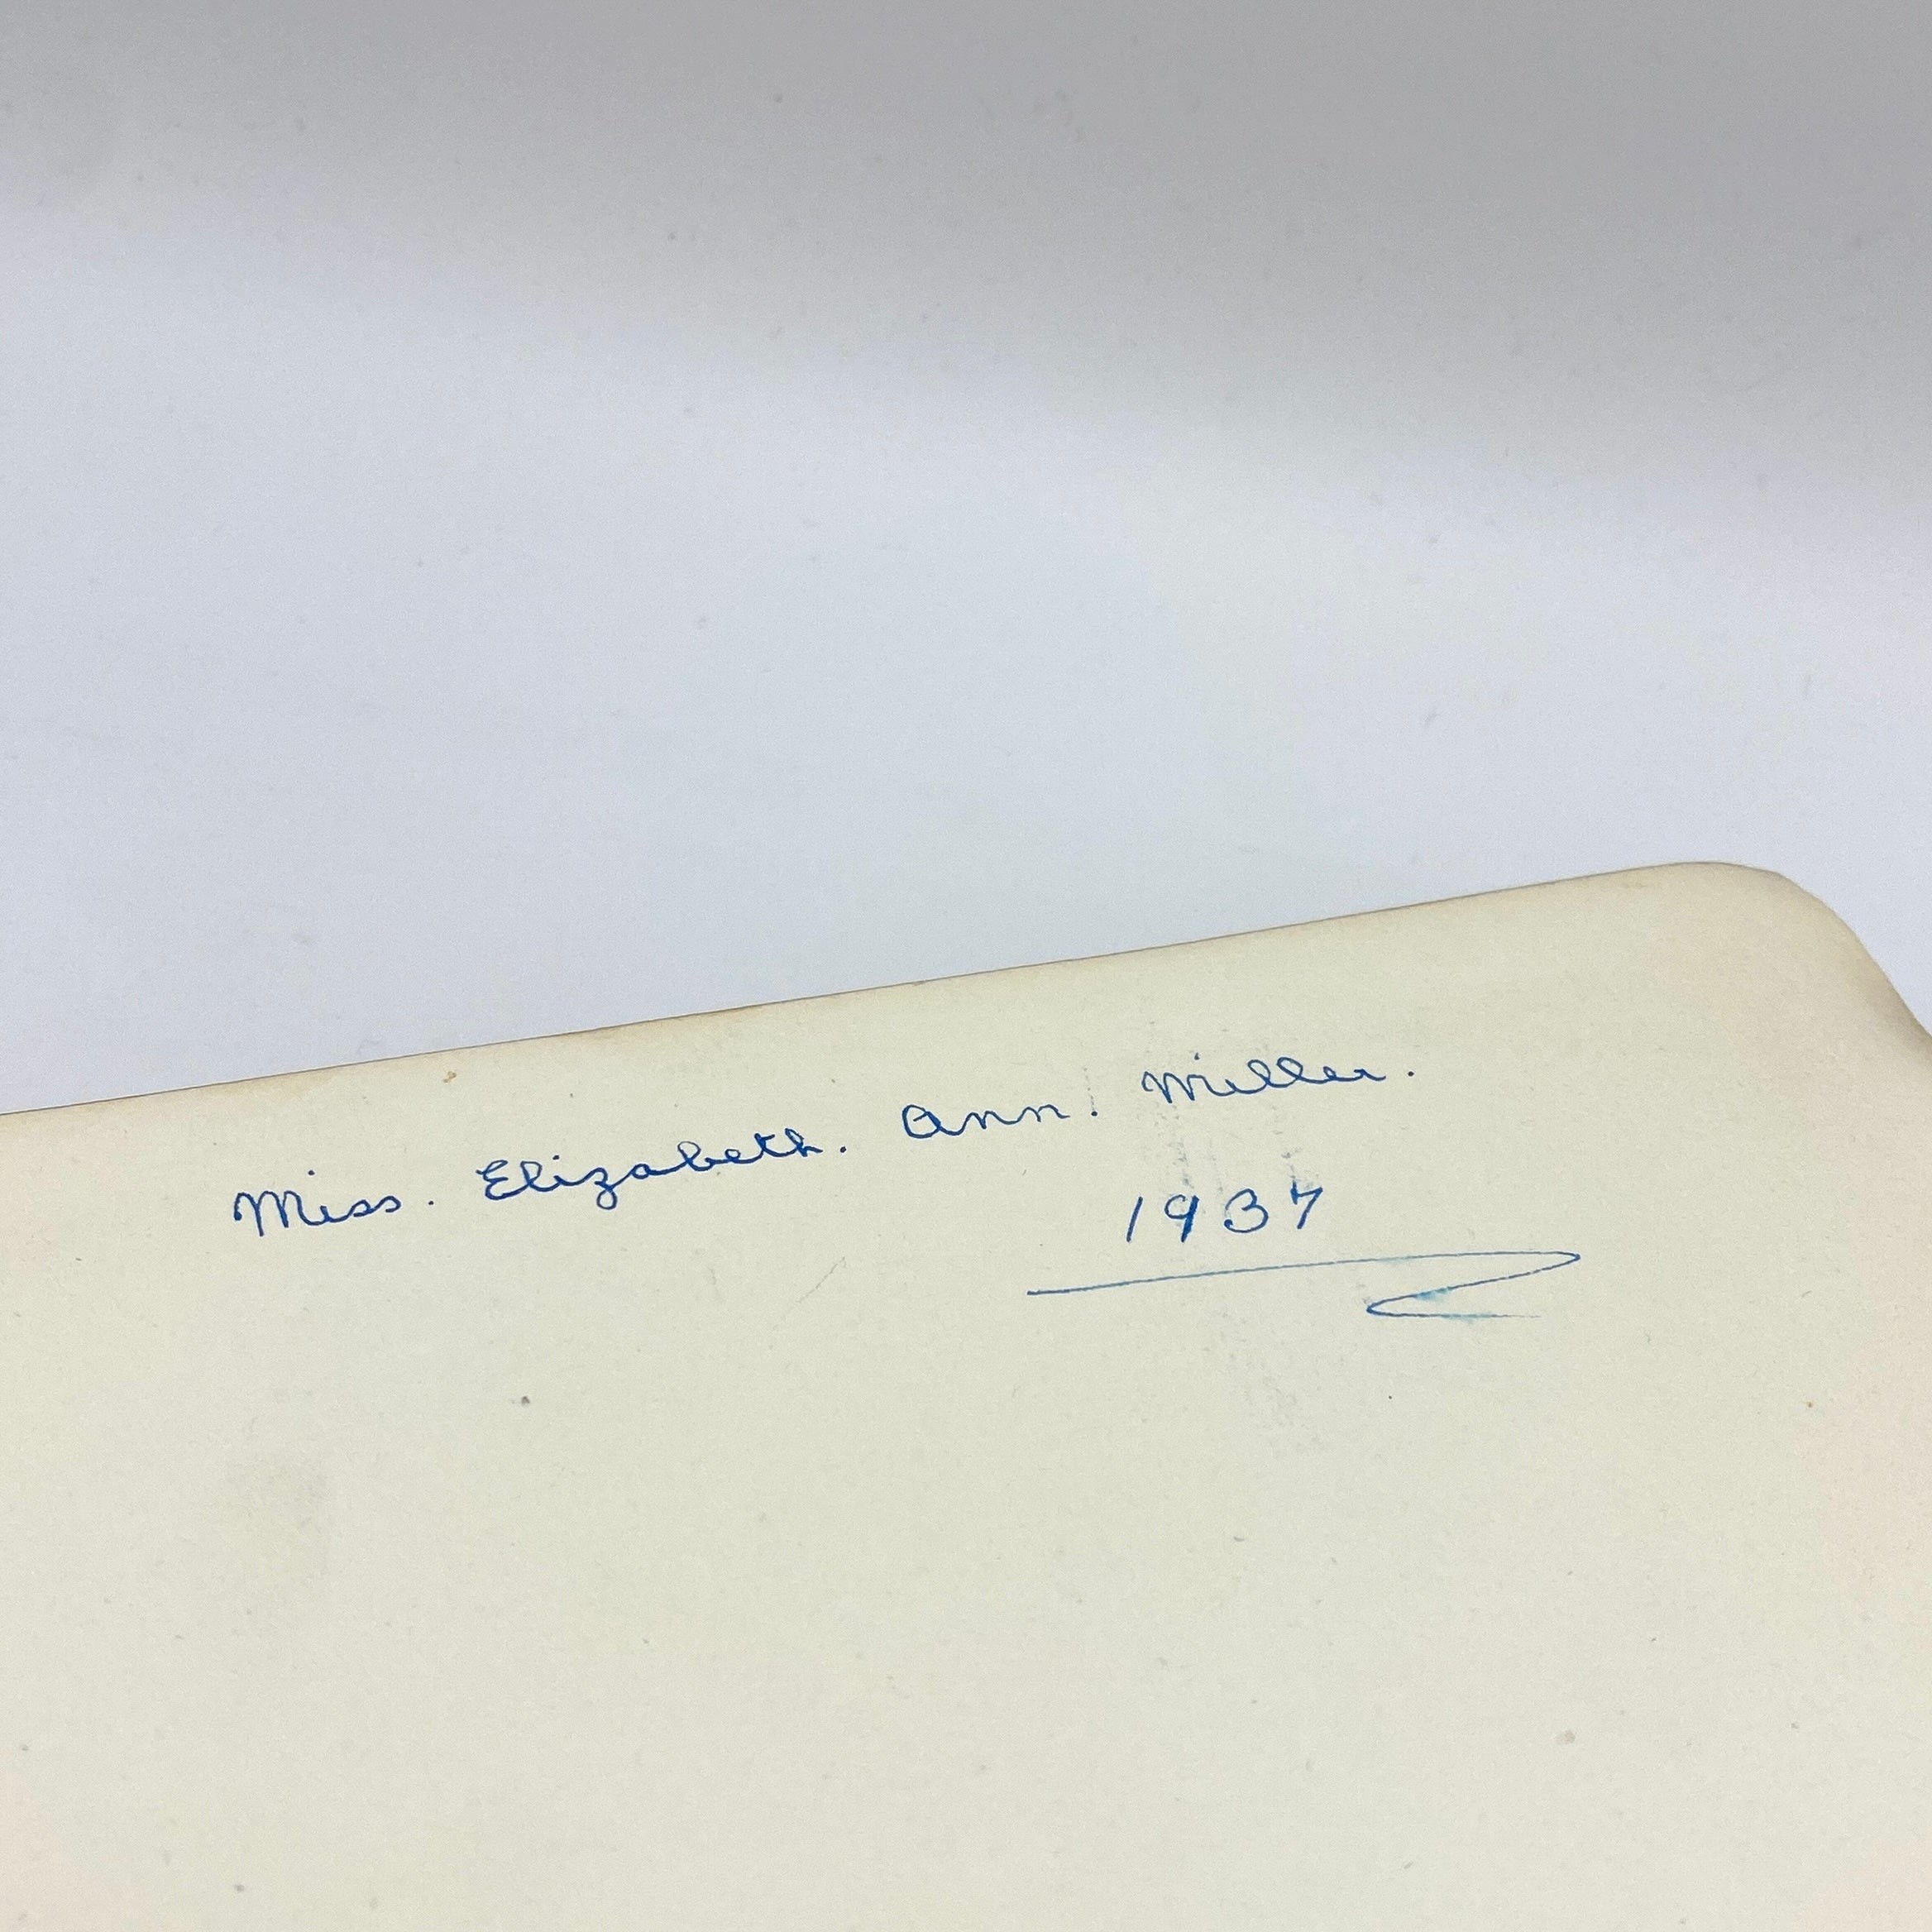 Miss. Elizabeth. Ann. Miller.
1937